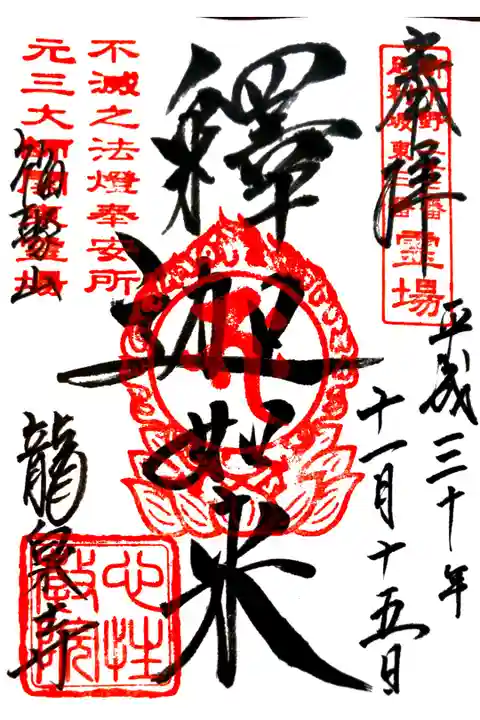 奉拝
霊場
平成三十年
十一月十五日
釋迦如来
不滅之法燈奉安所
元三大師
霊場
山
龍泉寺
心性
教院